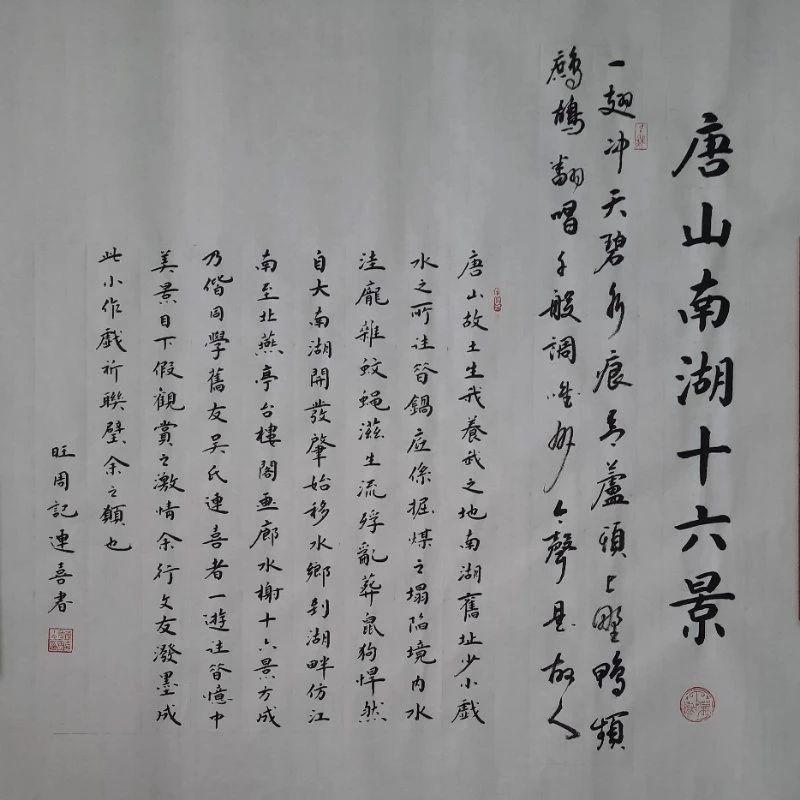 唐山南湖十六景
一翅冲天碧水痕芦蘆頭上野鴨頻
鷓鴣翻唱千般調唯妙今聲是故人
唐山故土生我養我之地南湖舊址少小戲
水之所往昔鍋應係掘煤之塌陷境内水
洼龐雜蚊蝇滋生流浮亂葬鼠狗悍然
自大南湖開發肇始移水鄉别湖畔仿江
南至北燕亭台樓閣画廊水榭十六景方成
乃偕同學舊友吴氏連喜者一遊往昔憶中
美景目下假觀賞之激情余行文友潑墨成
此小作戲祈聯璧余之願也
旺周記連喜者